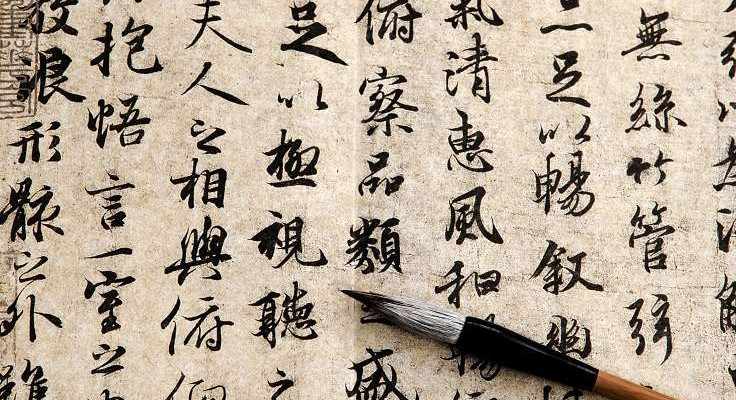 無絲竹管弦
足以暢敘幽
氣清惠風和暢
俯察品類之盛
足以極視聽之
夫人之相與俯仰
抱悟言一室之
放浪形骸之外雖